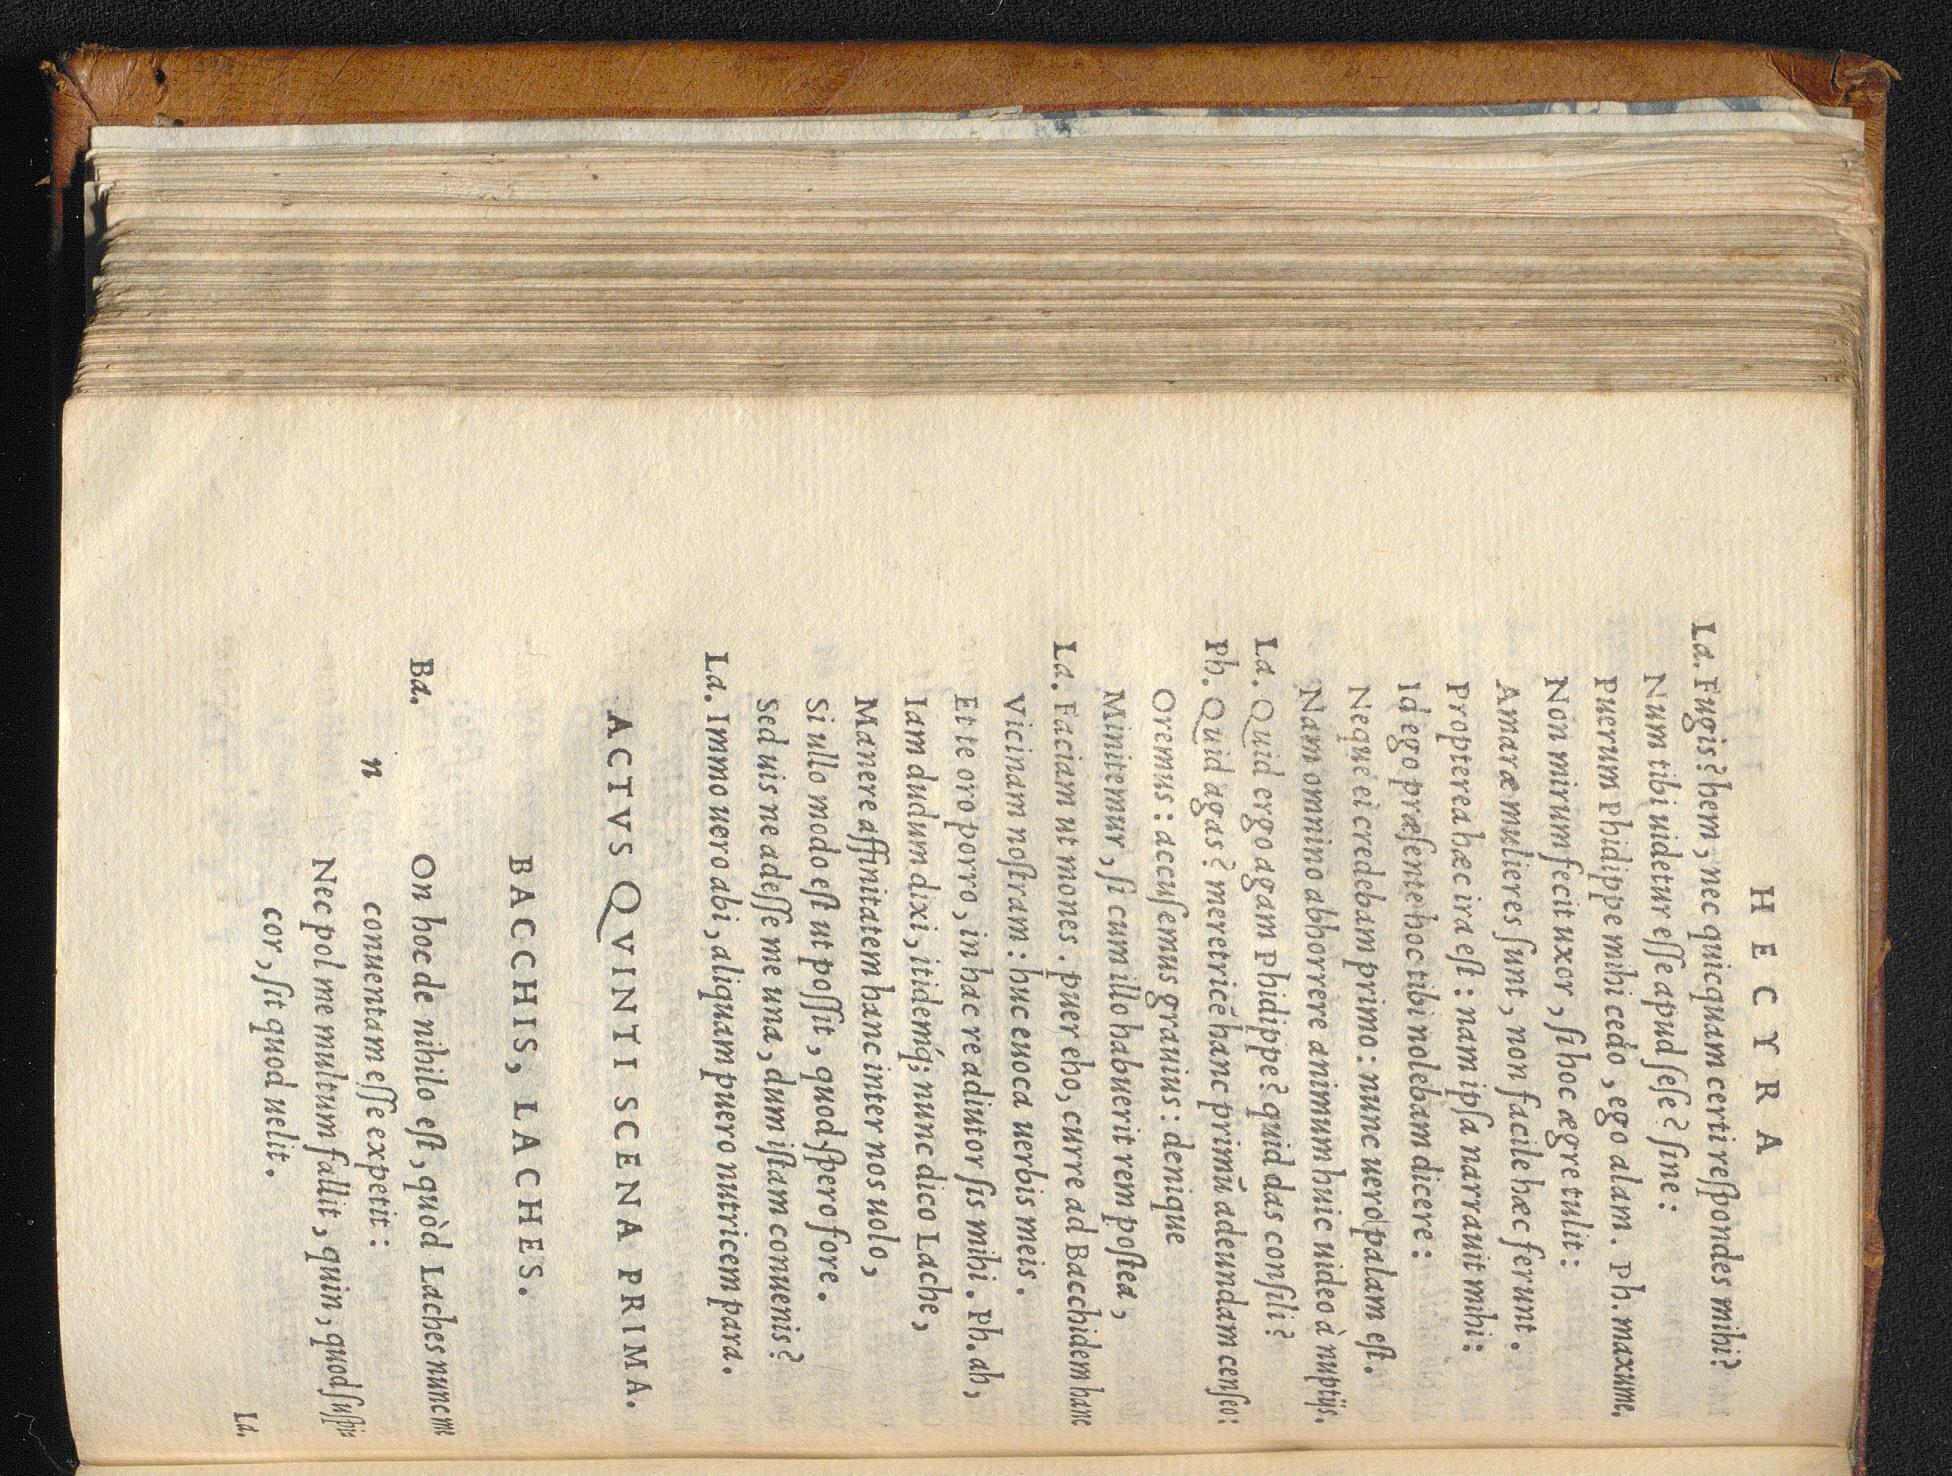 HECYRA
La. Fugis? hem, nec quicquam certi reſpondes mihi?
Num tibi uidetur eſſe apud ſeſe? ſine:
Puerum Phidippe mihi cedo, ego alam. Ph. maxume.
Non mirum fecit uxor, ſi hoc ægre tulit:
Amaræ mulieres ſunt, non facile hæc ferunt.
Propterea hæc ira eſt: nam ipſa narrauit mihi:
Id ego præſente hoc tibi nolebam dicere:
Neque ei credebam primo: nunc uero palam eſt.
Nam omnino abhorrere animum huic uideo à nuptijs.
La. Quid ergo agam Phidippe? quid das conſili?
Ph. Quid agas? meretricẽ hanc primũ adeundam cenſeo:
Oremus: accuſemus grauius: denique
Minitemur, ſi cum illo habuerit rem poſtea,
La. Faciam ut mones. puer eho, curre ad Bacchidem hanc
Vicinam noſtram: huc euoca uerbis meis.
Et te oro porro, in hac re adiutor ſis mihi. Ph. ah,
Iam dudum dixi, itidemq́; nunc dico Lache,
Manere affinitatem hanc inter nos uolo,
Si ullo modo eſt ut poſſit, quod ſpero fore.
Sed uis ne adeſſe me una, dum iſtam conuenis?
La. Immo uero abi, aliquam puero nutricem para.
ACTVS QVINTI SCENA PRIMA.
BACCHIS, LACHES.
Ba. On hoc de nihilo eſt, quòd Laches nunc me
n conuentam eſſe expetit:
Nec pol me multum fallit, quin, quod ſuſpi
cor, ſit quod uelit.
La.